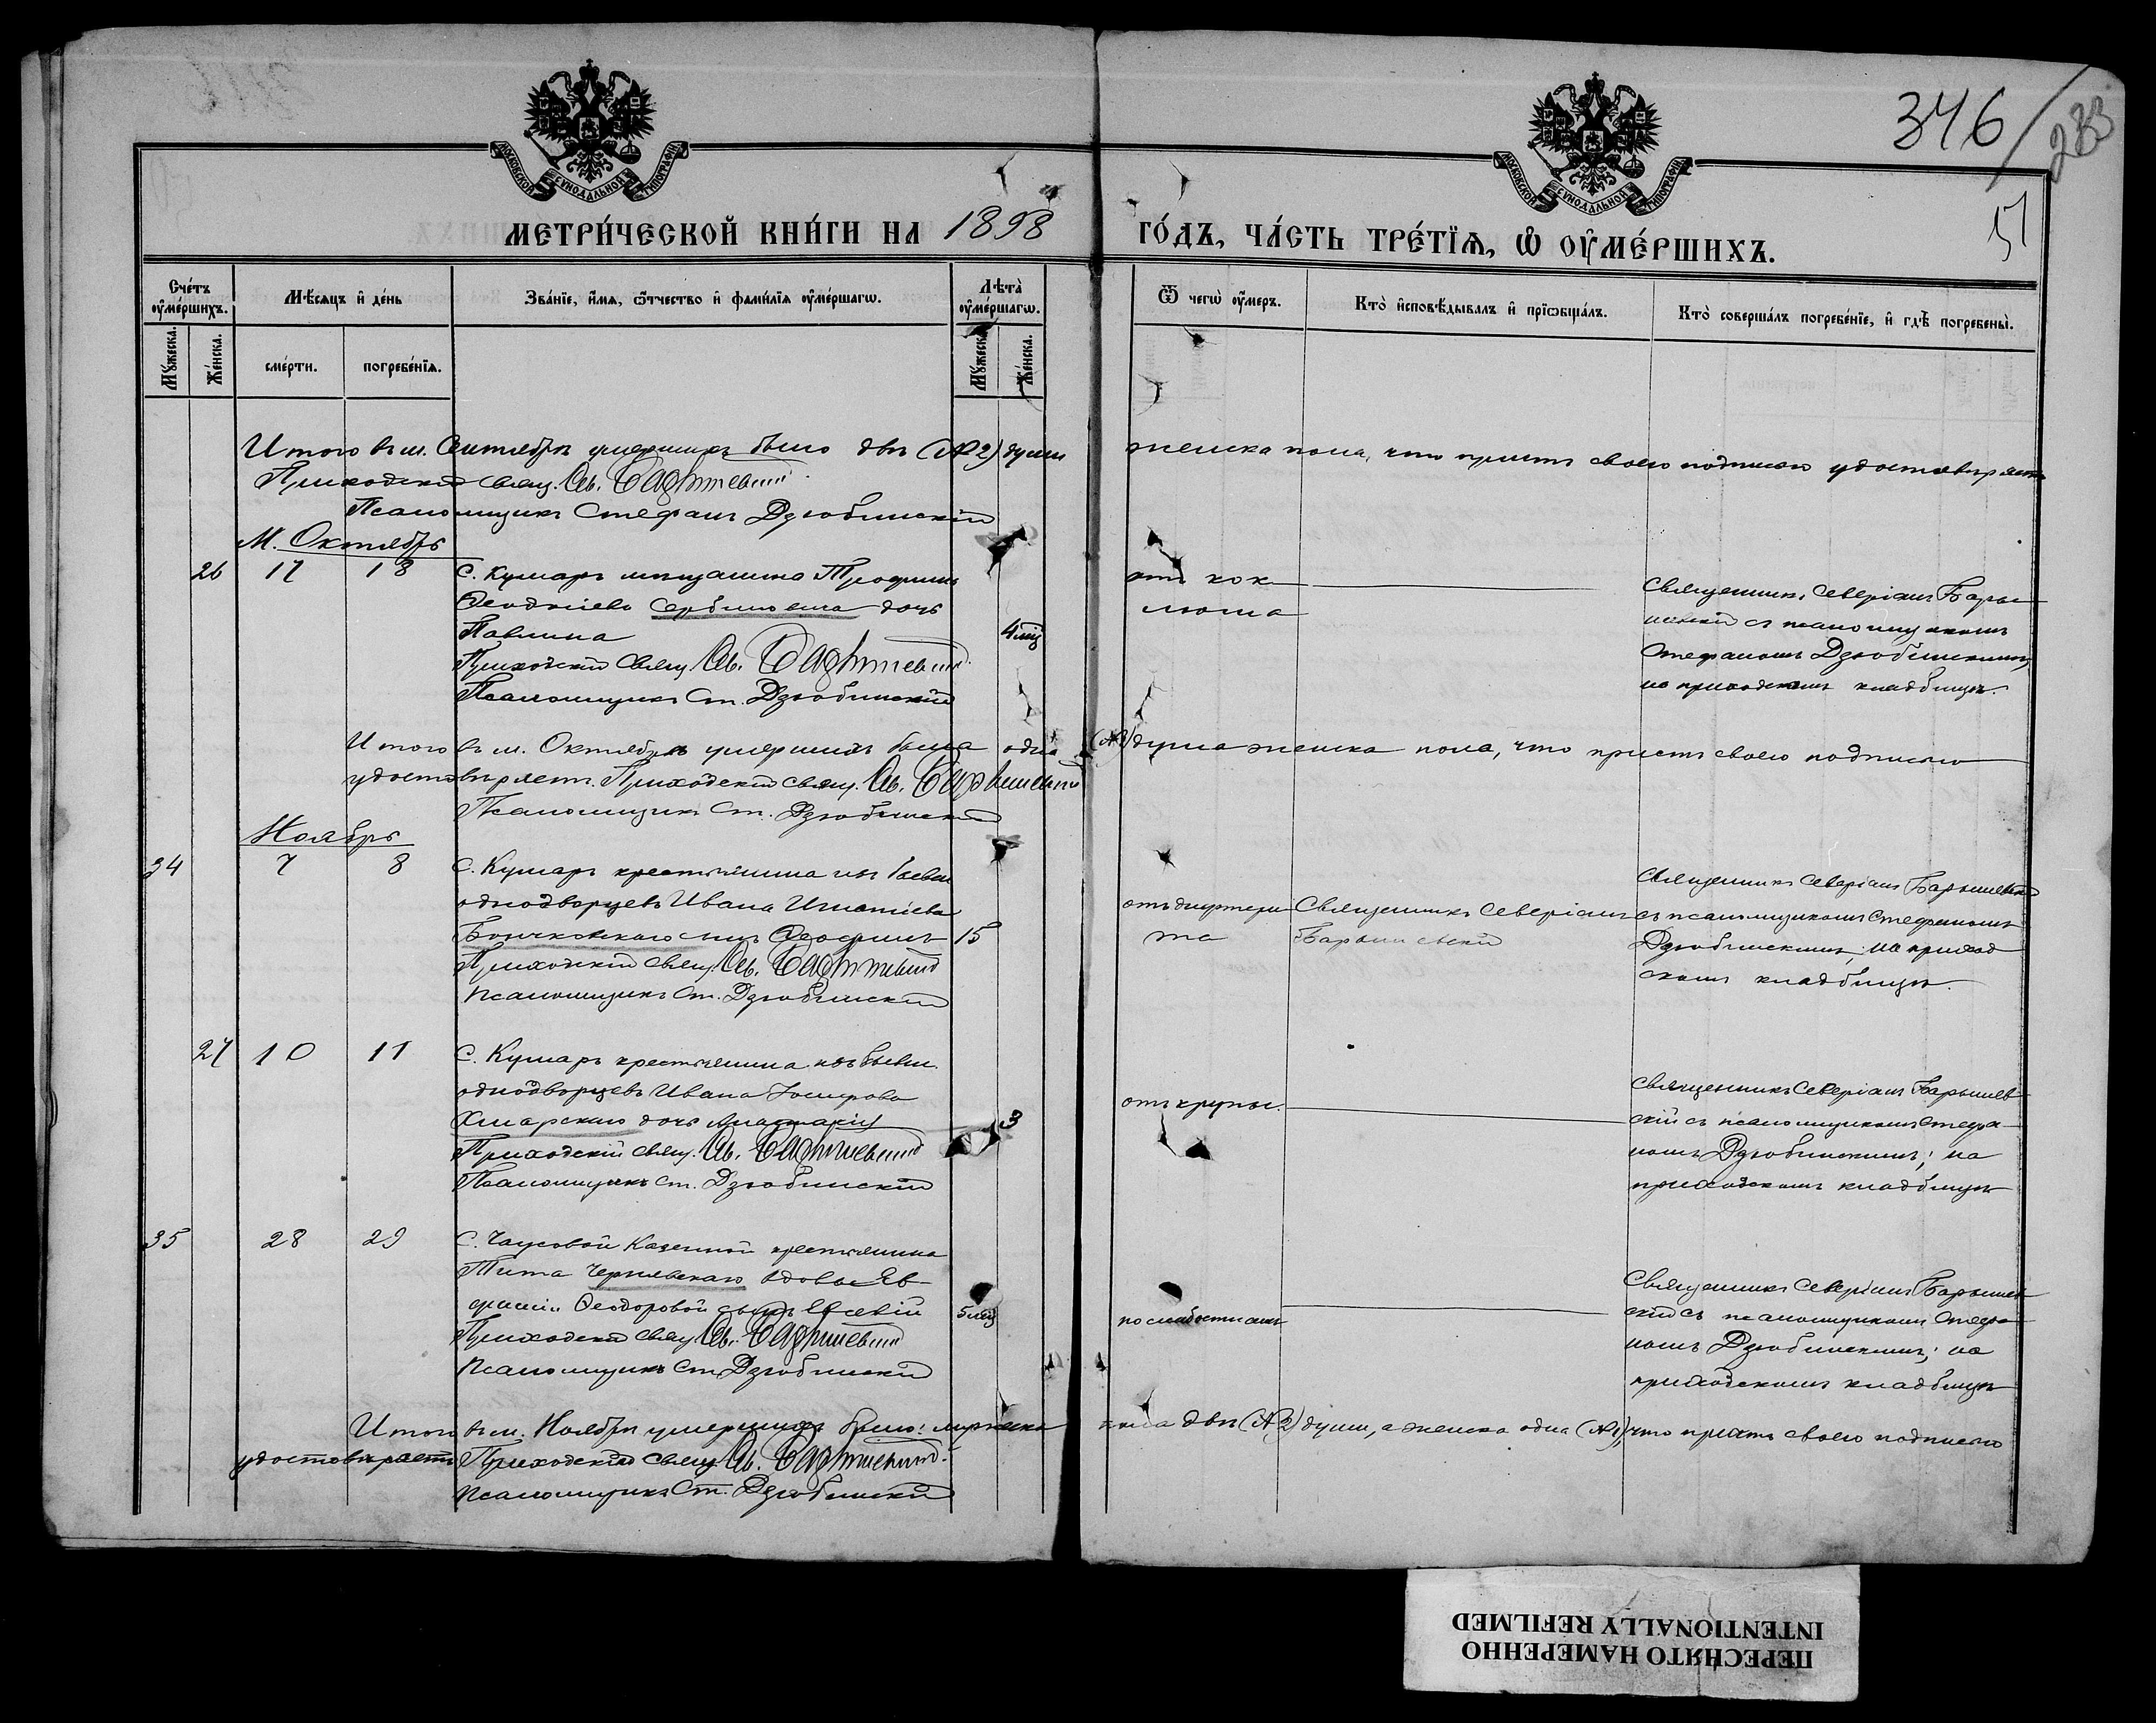 346
233
51
МОСКОВСКОЙ СѴНОДАЛЬНОЙ ТИПОГРАФІИ
МОСКОВСКОЙ СѴНОДАЛЬНОЙ ТИПОГРАФІИ
МЕТРИ́ЧЕСКОЙ КНИ́ГИ НА 1898 ГО́ДЪ, ЧА́СТЬ ТРЕ́ТІѦ, Ѽ ОУ҆МЕ́РШИХЪ.
Сче́тъ оу҆ме́ршихъ.
Мꙋ́жеска.
Же́нска.
Мѣ́сяцъ и҆ де́нь
сме́рти.
погребе́нїѧ.
Зва́нїе, и҆́мѧ, ѻ҆́тчество и҆ фами́лїѧ оу҆ме́ршагѡ.
Лѣ́та̀ оу҆ме́ршагѡ.
Мꙋ́жеска.
Же́нска.
Ѿ чегѡ̀ оу҆́меръ.
Кто̀ и҆сповѣ́дывалъ и҆ прїѡбща́лъ.
Кто̀ соверша́лъ погребе́нїе, и҆ гдѣ̀ погребены̀.
Итого въ м. Сентябрѣ умершихъ было двѣ (№ 2) души женска пола, что причтъ своею подписью удостовѣряетъ
Приходскій Свящ. Св. Барышевскій
Псаломщикъ Стефанъ Дзюбинскій
М. Октябрь
26 17 18
С. Кумаръ мѣщанина Трофима
Сербиновича дочь
Павлина
4 мѣс
Приходскій Свящ. Св. Барышевскій
Псаломщикъ Ст. Дзюбинскій
отъ кок
люша
Священникъ Северіанъ Бары
шевскій съ псаломщикомъ
Стефаномъ Дзюбинскимъ,
на приходскомъ кладбищѣ.
Итого въ м. Октябрѣ умершихъ была одна (№ 1) душа женска пола, что причтъ своею подписью
удостовѣряетъ. Приходскій Свящ. Св. Барышевскій
Псаломщикъ Ст. Дзюбинскій
Ноябрь
34 7 8
С. Кумаръ крестьянина изъ бывш
однодворцевъ Ивана Игнатіева
Бончковскаго сынъ Феофилъ
15
Приходскій Свящ. Св. Барышевскій
Псаломщикъ Ст. Дзюбинскій
отъ дифтери
та
Священникъ Северіанъ
Барышевскій
Священникъ Северіанъ Барышевскій
съ псаломщикомъ Стефаномъ
Дзюбинскимъ, на приход
скомъ кладбищѣ.
27 10 11
С. Кумаръ крестьянина изъ бывш.
однодворцевъ Ивана
Хмарскаго дочь
3
Приходскій Свящ. Св. Барышевскій
Псаломщикъ Ст. Дзюбинскій
отъ крупы.
Священникъ Северіанъ Барышев
скій съ псаломщикомъ Стефа
номъ Дзюбинскимъ; на
приходскомъ кладбищѣ
35 28 29
С. Чаусовой Казенной крестьянина
Тита Чернявскаго вдовы Ев
Феодоровой сынъ
5 мѣс
Приходскій Свящ. Св. Барышевскій
Псаломщикъ Ст. Дзюбинскій
по слабости силъ
Священникъ Северіанъ Барышев
скій съ псаломщикомъ Стефа
номъ Дзюбинскимъ; на
приходскомъ кладбищѣ
Итого въ м. Ноябрѣ умершихъ было: мужеска пола двѣ (№ 2) души, а женска одна (№ 1), что причтъ своею подписью
удостовѣряетъ Приходскій Свящ. Св. Барышевскій
Псаломщикъ Ст. Дзюбинскій
ПЕРЕСНЯТО НАМЕРЕННО
INTENTIONALLY REFILMED